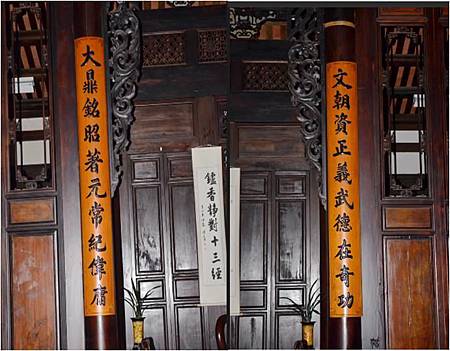 文朝資正義武德在奇功
大鼎銘昭著元常紀偉庸
鑪香靜對十三經